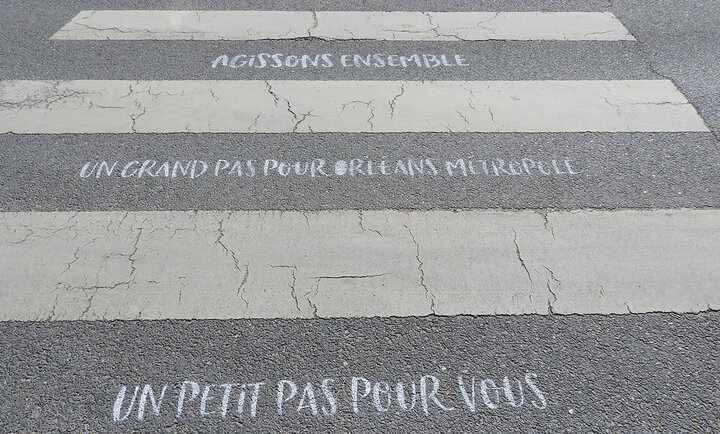 AGISSONS ENSEMBLE
UN GRAND PAS POUR ORLÉANS MÉTROPOLE
UN PETIT PAS POUR VOUS